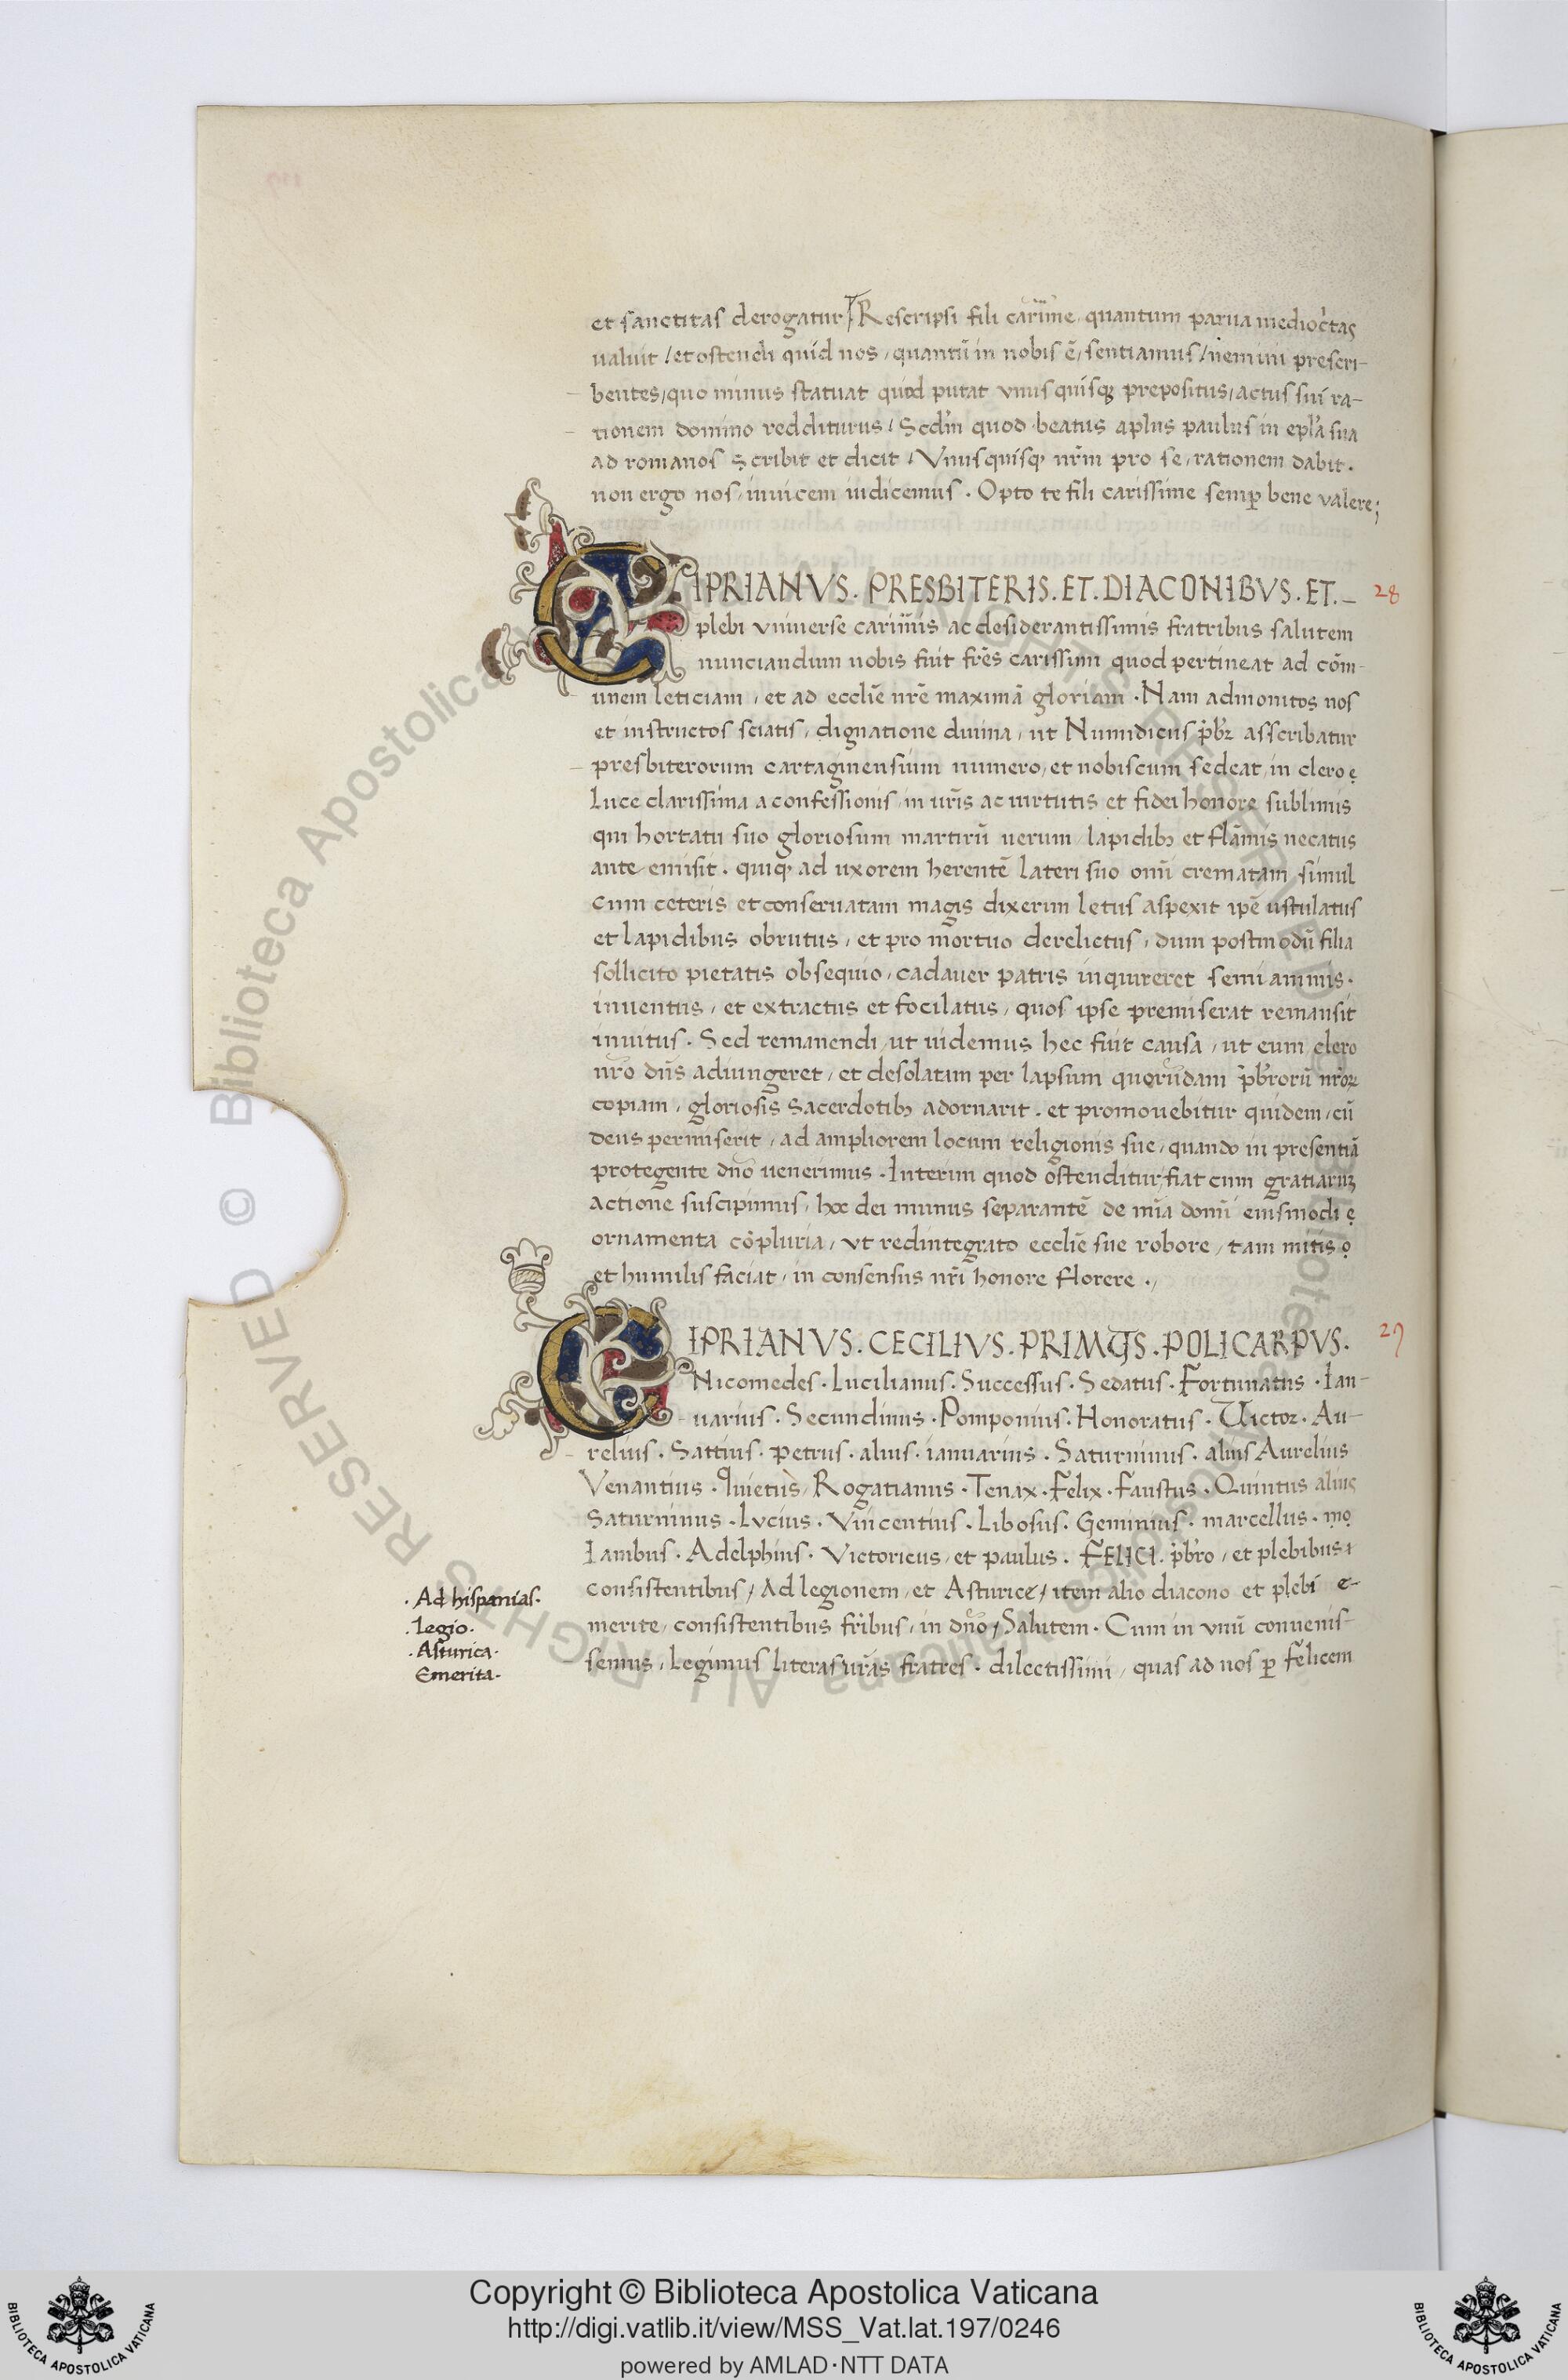 et sanctitas derogatur / Rescripsi fili cariıme quantum parua mediocitas
ualuit / et ostendi quid nos / quantū in nobis ē / sentiamus / nemini prescri-
bentes / quo minus statuat quod putat vnusquisq; prepositus / actus sui ra-
tionem domino redditurus / Scdm̄ quod beatus apl̄us paulus in epl̄a sua
ad romanos scribit et dicit / Vnusquisq; nr̄m pro se / rationem dabit .
non ergo nos / inuicem iudicemus . Opto te fili carissime semꝑ bene valere ;
CIPRIANVS . PRESBITERIS . ET . DIACONIBVS . ET . – 28
plebi vniuerse carimis ac desiderantissimis fratribus salutem
nunciandum nobis fuit fr̄es carissimi quod pertineat ad cōm-
unem leticiam / et ad eccliē nrē maximā gloriam . Nam admonitos nos
et instructos sciatis / dignatione diuina / ut Numidicus pb̄r asscribatur
presbiterorum cartaginensium numero / et nobiscum sedeat in clero ẹ
luce clarissima a confessionis in ur̄is ac uirtutis et fidei honore sublimis
qui hortatu suo gloriosum martirū uerum lapidibꝫ et flāmis necatus
ante emisit . quiq; ad uxorem herentē lateri suo om̄i crematam simul
cum ceteris et conseruatam magis dixerim letus aspexit ip̄e ustulatus
et lapidibus obrutus / et pro mortuo derelictus / dum postmodū filia
sollicito pietatis obsequio / cadauer patris inquireret semianimis .
inuentus / et extractus et focilatus / quos ipse premiserat remansit
inuitus . Sed remanendi ut uidemus hec fuit causa / ut eum clero
nr̄o dn̄s adiungeret / et desolatam per lapsum querūdam pb̄rorū nr̄oꝝ
copiam / gloriosis sacerdotibꝫ adornarit . et promouebitur quidem / cū
deus permiserit / ad ampliorem locum religionis sue / quando in presentiā
protegente dn̄o uenerimus . Interim quod ostenditur fiat cum gratiarꝫ
actione suscipimus / hoc dei munus separantē de mīa domī eiusmodi ẹ
ornamenta cōpluria / vt redintegrato eccliē sue robore / tam mitis ọ
et humilis faciat / in consensus nr̄i honore florere . /
CIPRIANVS . CECILIVS . PRIMUS . POLICARPVS . 29
Nicomedes . Lucilianus . Successus . Sedatus . Fortunatus . Ian-
uarius . Secundinus . Pomponius . Honoratus . Victor . Au-
relius . Sattius . petrus . alius . ianuarius . Saturninus . alius Aurelius
Venantius . Quietus / Rogatianus . Tenax . Felix . Faustus . Quintus alius
Saturninus . Lvcius . Vincentius . Libosus . Geminius . marcellus . mọ
Iambus . Adelphius . Victoricus / et paulus . FELICI . pb̄ro / et plebibus
consistentibus / Ad legionem / et Asturice / item alio diacono et plebi e-
merite / consistentibus fr̄ibus / in dn̄o / Salutem . Cum in vnū conuenis-
semus / Legimus literas ur̄as fratres . dilectissimi / quas ad nos ꝑ felicem
. Ad hispanias .
. Legio .
. Asturica .
Emerita .
© Biblioteca Apostolica Vaticana ALL RIGHTS RESERVED
Copyright © Biblioteca Apostolica Vaticana
http://digi.vatlib.it/view/MSS_Vat.lat.197/0246
powered by AMLAD·NTT DATA
BIBLIOTECA APOSTOLICA VATICANA
BIBLIOTECA APOSTOLICA VATICANA